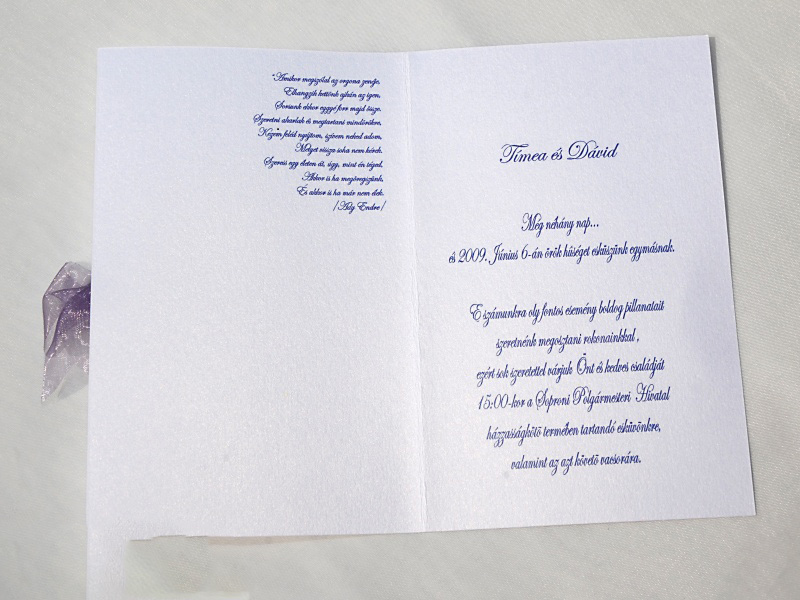 "Amikor megszólal az orgona zenéje,
Elhangzik kettőnk ajkán az igen.
Sorsunk ekkor eggyé forr majd össze.
Szeretni akarlak és megtartani mindörökre.
Kezem feléd nyújtom, szívem neked adom,
Melyet vissza soha nem kérek.
Szeress egy életen át, úgy, mint én téged,
Akkor is ha megöregszünk,
És akkor is ha már nem élek.
/Ady Endre/
Tímea és Dávid
Még néhány nap...
és 2009. Június 6-án örök hűséget esküszünk egymásnak.
E számunkra oly fontos esemény boldog pillanatait
szeretnénk megosztani rokonainkkal,
ezért sok szeretettel várjuk Önt és kedves családját
15:00-kor a Soproni Polgármesteri Hivatal
házzasságkötő termében tartandó esküvőnkre,
valamint az azt követő vacsorára.